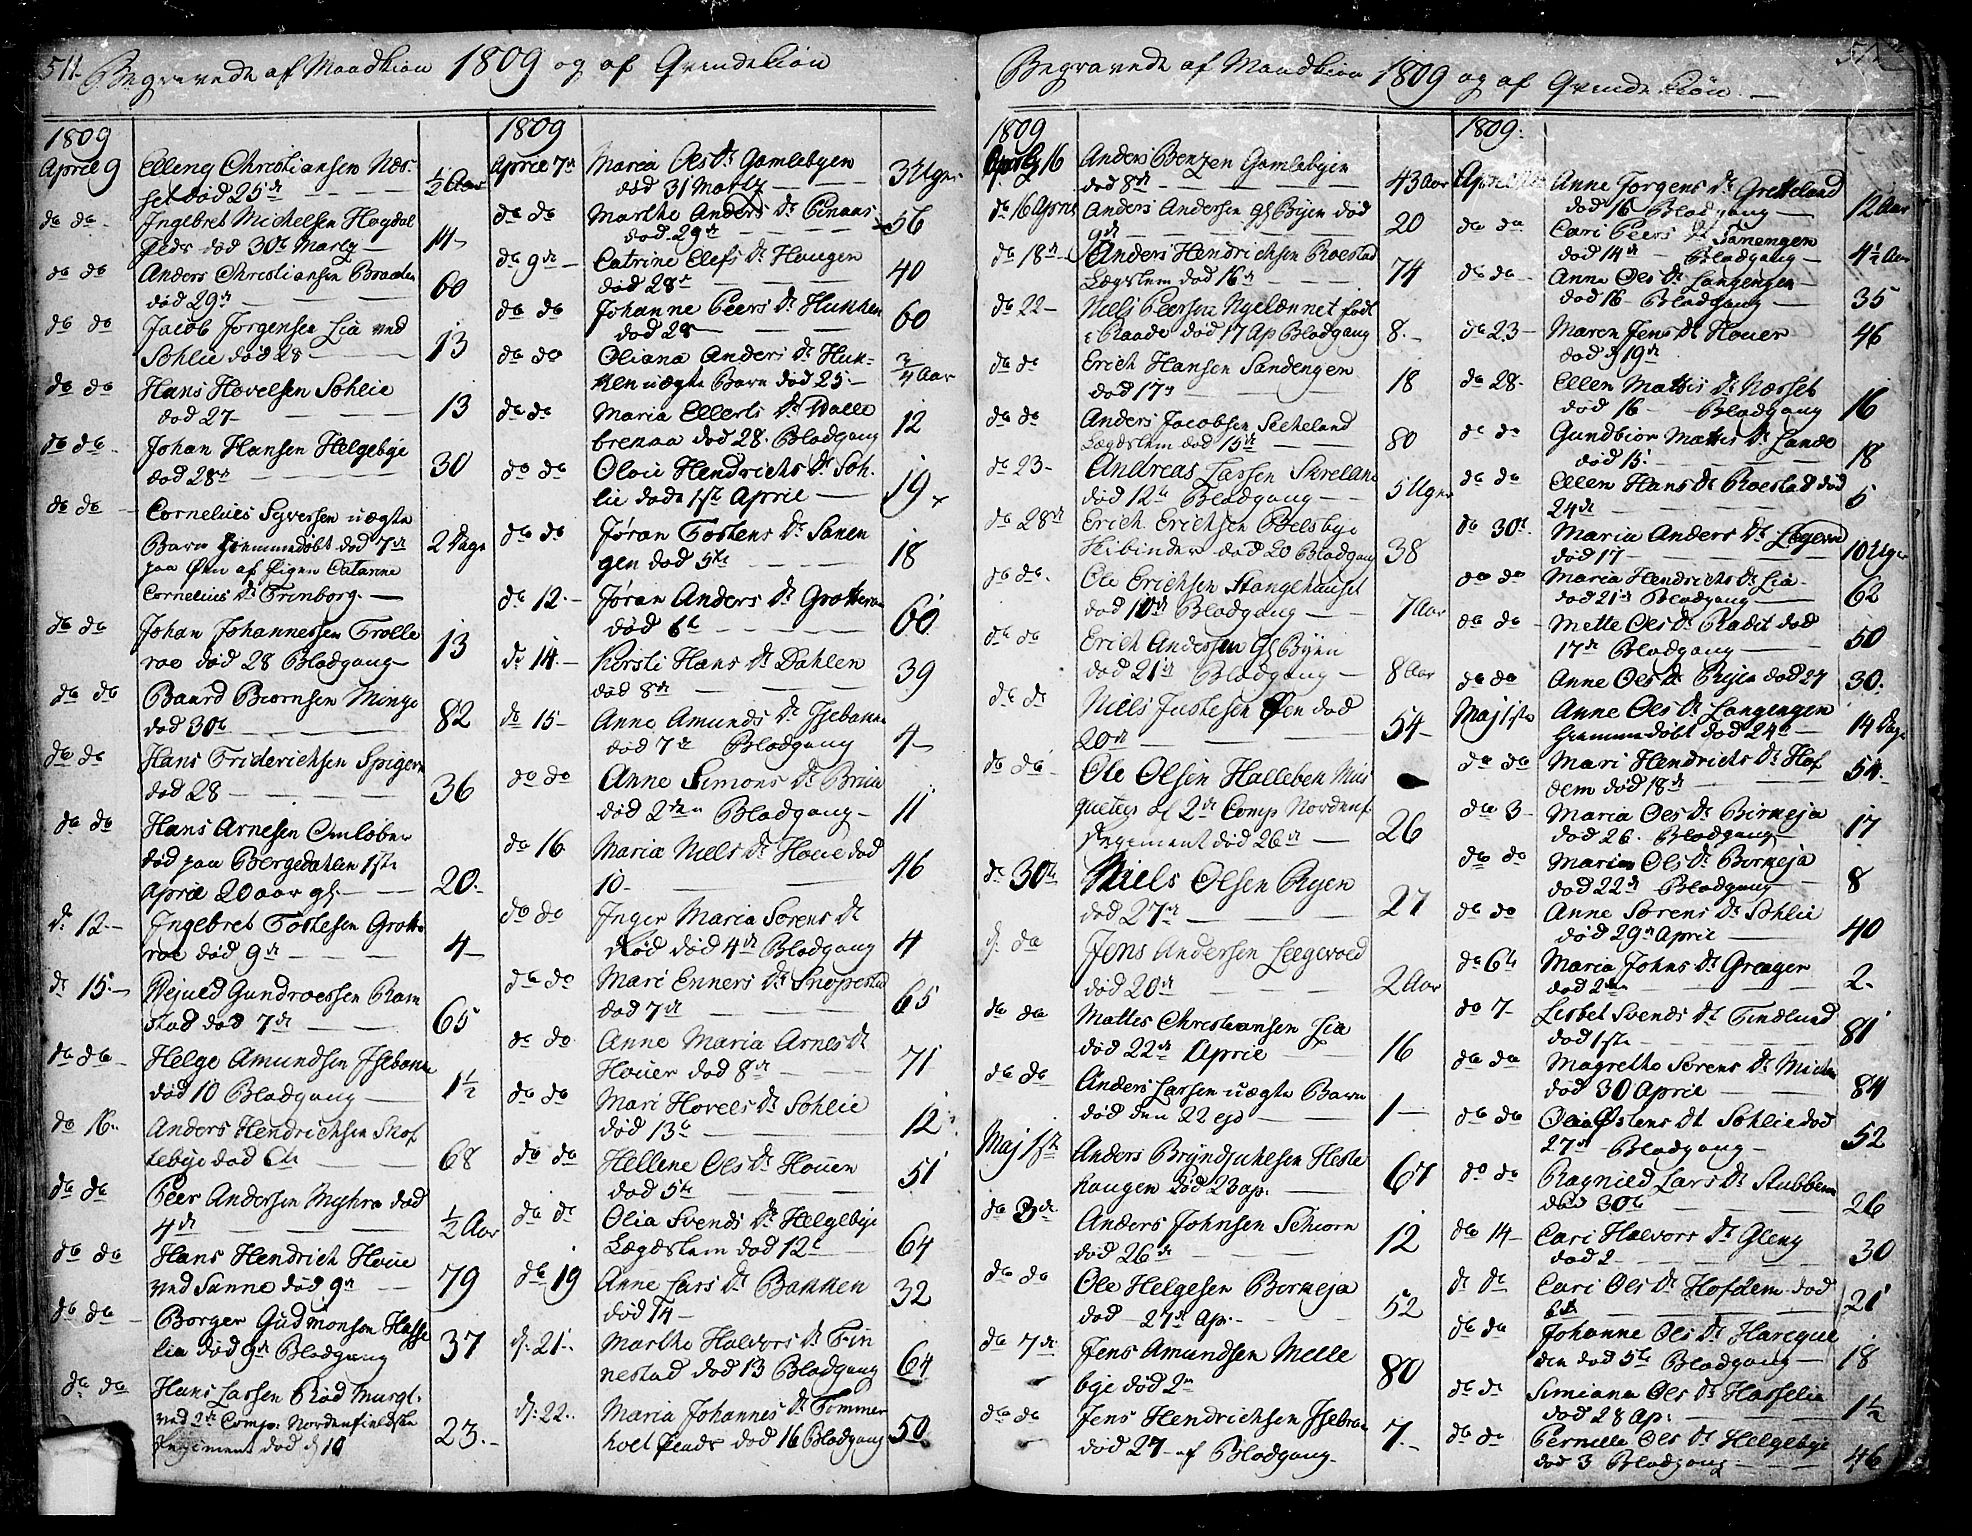 511. Begravede af Mandkiøn 1809 og af Qvindekiøn
1809
April 9 Elleng Christiansen Næs-
set død 25de ½ Aar
do do Ingebret Michelsen Høgdal
død 30te Marty 14
do do Anders Christiansen Braaten
død 29de 60
do do Jacob Jørgensen Lia ved
Sohlie død 28 13
do do Hans Hovelsen Sohlie
død 27 13
do do Johan Hansen Helgebye
død 28de 30
do do Cornelius Syversen uægte
Barn hiemmedøbt død 7de 2 Dage
paa Øen af Pigen Catarine
Cornelius Dr Trinborg
do do Johan Johannessen Trolle
roe død 28 Blodgang 13
do do Baard Biørnsen Minge
død 30te 82
do do Hans Friderichsen Spigeren
død 28 36
do do Hans Arnesen Omløber
død paa Bergedahlen 1ste
April 20 aar gl. 20
do 12 Ingebret Tostesen Grotte
roe død 9de 4
do 15 Gundroessen Ram
stad død 7de 65
do do Helge Amundsen Isebakke
død 10 Blodgang 1½
do 16 Anders Hendrichsen Skof
tebye død 68
do do Peer Andersen Myhra død
4de ½ Aar
do do Hans Hendrich Houe
ved Sanne død 9de 79
do do Borger Gudmonsen Hasse
lia død 9de Blodgang 37
do do Hans Larsen Rød
ved 2de Comp: Nordenfieldske
Regiment død d 10 23
1809
April 7de Maria Oles Dr Gamlebyen
død 31 Marty 3 Uger
do do Marthe Anders Dr
død 29de 56
do 9de Catrine Olefs Dr Haugen
død 28de 40
do do Johanne Peers Dr Hukken
død 28 60
do do Oliana Anders Dr Huk-
ken uægte Barn død 25 ¾ Aar
do do Maria Ellerts Dr Walle
brekaa død 28. Blodgang 12
do do Oloui Hendrichs Dr Soh-
lie døde 1ste April 19
do do Jøran Tostens Dr Sanen
gen død 5te 18
do 12 Jøran Anders Dr Grotteroe
død 6te 60
do 14 Kirsti Hans Dr Dahlen
død 8de 39
do 15 Anne Amunds Dr Isebakke
død 7de Blodgang 4
do do Anne Simons Dr
død 2den Blodgang 11
do 16 Maria Niels Dr Houe død
10 46
do do Inger Maria Sørens Dr
Rød død 4de Blodgang 4
do do Mari Enners Dr
død 7de 65
do do Anne Maria Arnes Dr
Houer død 8de 71
do do Mari Hovels Dr Sohlie
død 13de 12
do do Hellene Oles Dr Houen
død 5te 51
do do Olia Svends Dr Helgebye
Lægdslem død 12te 64
do 19 Anne Lars Dr Bakken
død 14 32
d. 21 Marthe Halvors Dr Fin
nestad død 13 Blodgang 64
d. 22 Maria Johannes Dr Tømmer
holt død 16 Blodgang 50
Begravede af Mandkiøn 1809 og af Qvindekiøn
1809
April 16 Anders Benzen Gamlebyen
død 8de 43 Aar
Anders Andersen Gl Byen død
9de 20
do 18de Anders Hendrichsen Roestad
Lægslem død 16de 74
do 22 Niels Peersen født
i Raade død 17 Ap Blodgang 8
do do Erich Hansen Sandengen
død 17de 18
do do Anders Jacobsen
Lægdslem død 15de 80
do 23 Andreas Larsen
død 12te Blodgang 5 Uger
do 28de Erich Erichsen Belsbye
død 20 Blodgang 38
do do Ole Erichsen Stangehuuset
død 10de Blodgang 7 Aar
do do Erich Andersen Gl Byen
død 21de Blodgang 8 Aar
do do Niels Justesen Øen død
20de 54
do do Ole Olsen Halleben Mus
queteer af 2de Comp Nordenf.
Regiment død 26de 26
do 30te Niels Olsen Ryen
død 27de 27
d. do Jens Andersen
død 20de 2 Aar
do do Mattis Christiansen Lia
død 22de April 16
do do Anders Larsen uægte Barn
død den 22 1
Maj 1ste Anders Heste
haugen død 23 ap. 67
do 3de Anders Johnsen
død 26de 12
do do Ole Helgesen Borkeja
død 27de Ap: 52
do 7de Jens Amundsen Melle
bye død 2den 80
do do Jens Hendrichsen Isebakke
død 27 af Blodgang 7
1809.
Anne Jørgens Dr Grekeland
død 16 Blodgang 12 Aar
do do Cari Peers Dr Sanengen
død 14de Blodgang 4½ Aar
do do Anne Oles Dr Langengen
død 16 Blodgang 35
do 23 Maren Jens Dr Houer
død d 19de 46
do 28 Ellen Mattis Dr Næsset
død 16 Blodgang 16
do do Gundbior Mattis Dr Lande
død 15 18
do do Ellen Hans Dr Roestad død
24de 5
do 30te Maria Anders Dr
død 17 10 Uger
do do Maria Hendrichs Dr Lia
død 21de Blodgang 62
do do Mette Oles Dr død
17de Blodgang 50
do do Anne Oles Dr Ryen død 27 30
Maj 1ste Anne Oles Dr Langengen
hiemmedøbt død 24de 14 Dage
do do Mari Hendrichs Dr Hof
dem død 18de 54
do 3 Maria Oles Dr Borkeja
død 26. Blodgang 17
do do Maria Oles Dr Borkeja
død 22de Blodgang 8
do do Anne Sørens Dr Sohlie
død 29de April 40
do 6te Maria Johns Dr Greager
død 2den 2
do 7 Lisbet Svends Dr Tindlund
død 1ste 81
do do Magrethe Sørens Dr
død 30 April 84
do do Olia Østens Dr Sohlie død
27de Blodgang 52
do do Ragnild Lars Dr Stubben
død 30te 26
do 14 Cari Halvors Dr Gleng
død 2 30
do do Cari Oles Dr Hofdem død
6te 21
do do Johanne Oles Dr
død 5te Blodgang 18
do do Simiana Oles Dr Hasselia
død 28 Ap: 1½
do do Pernille Oles Dr Helgebye
død 3 Blodgang 46